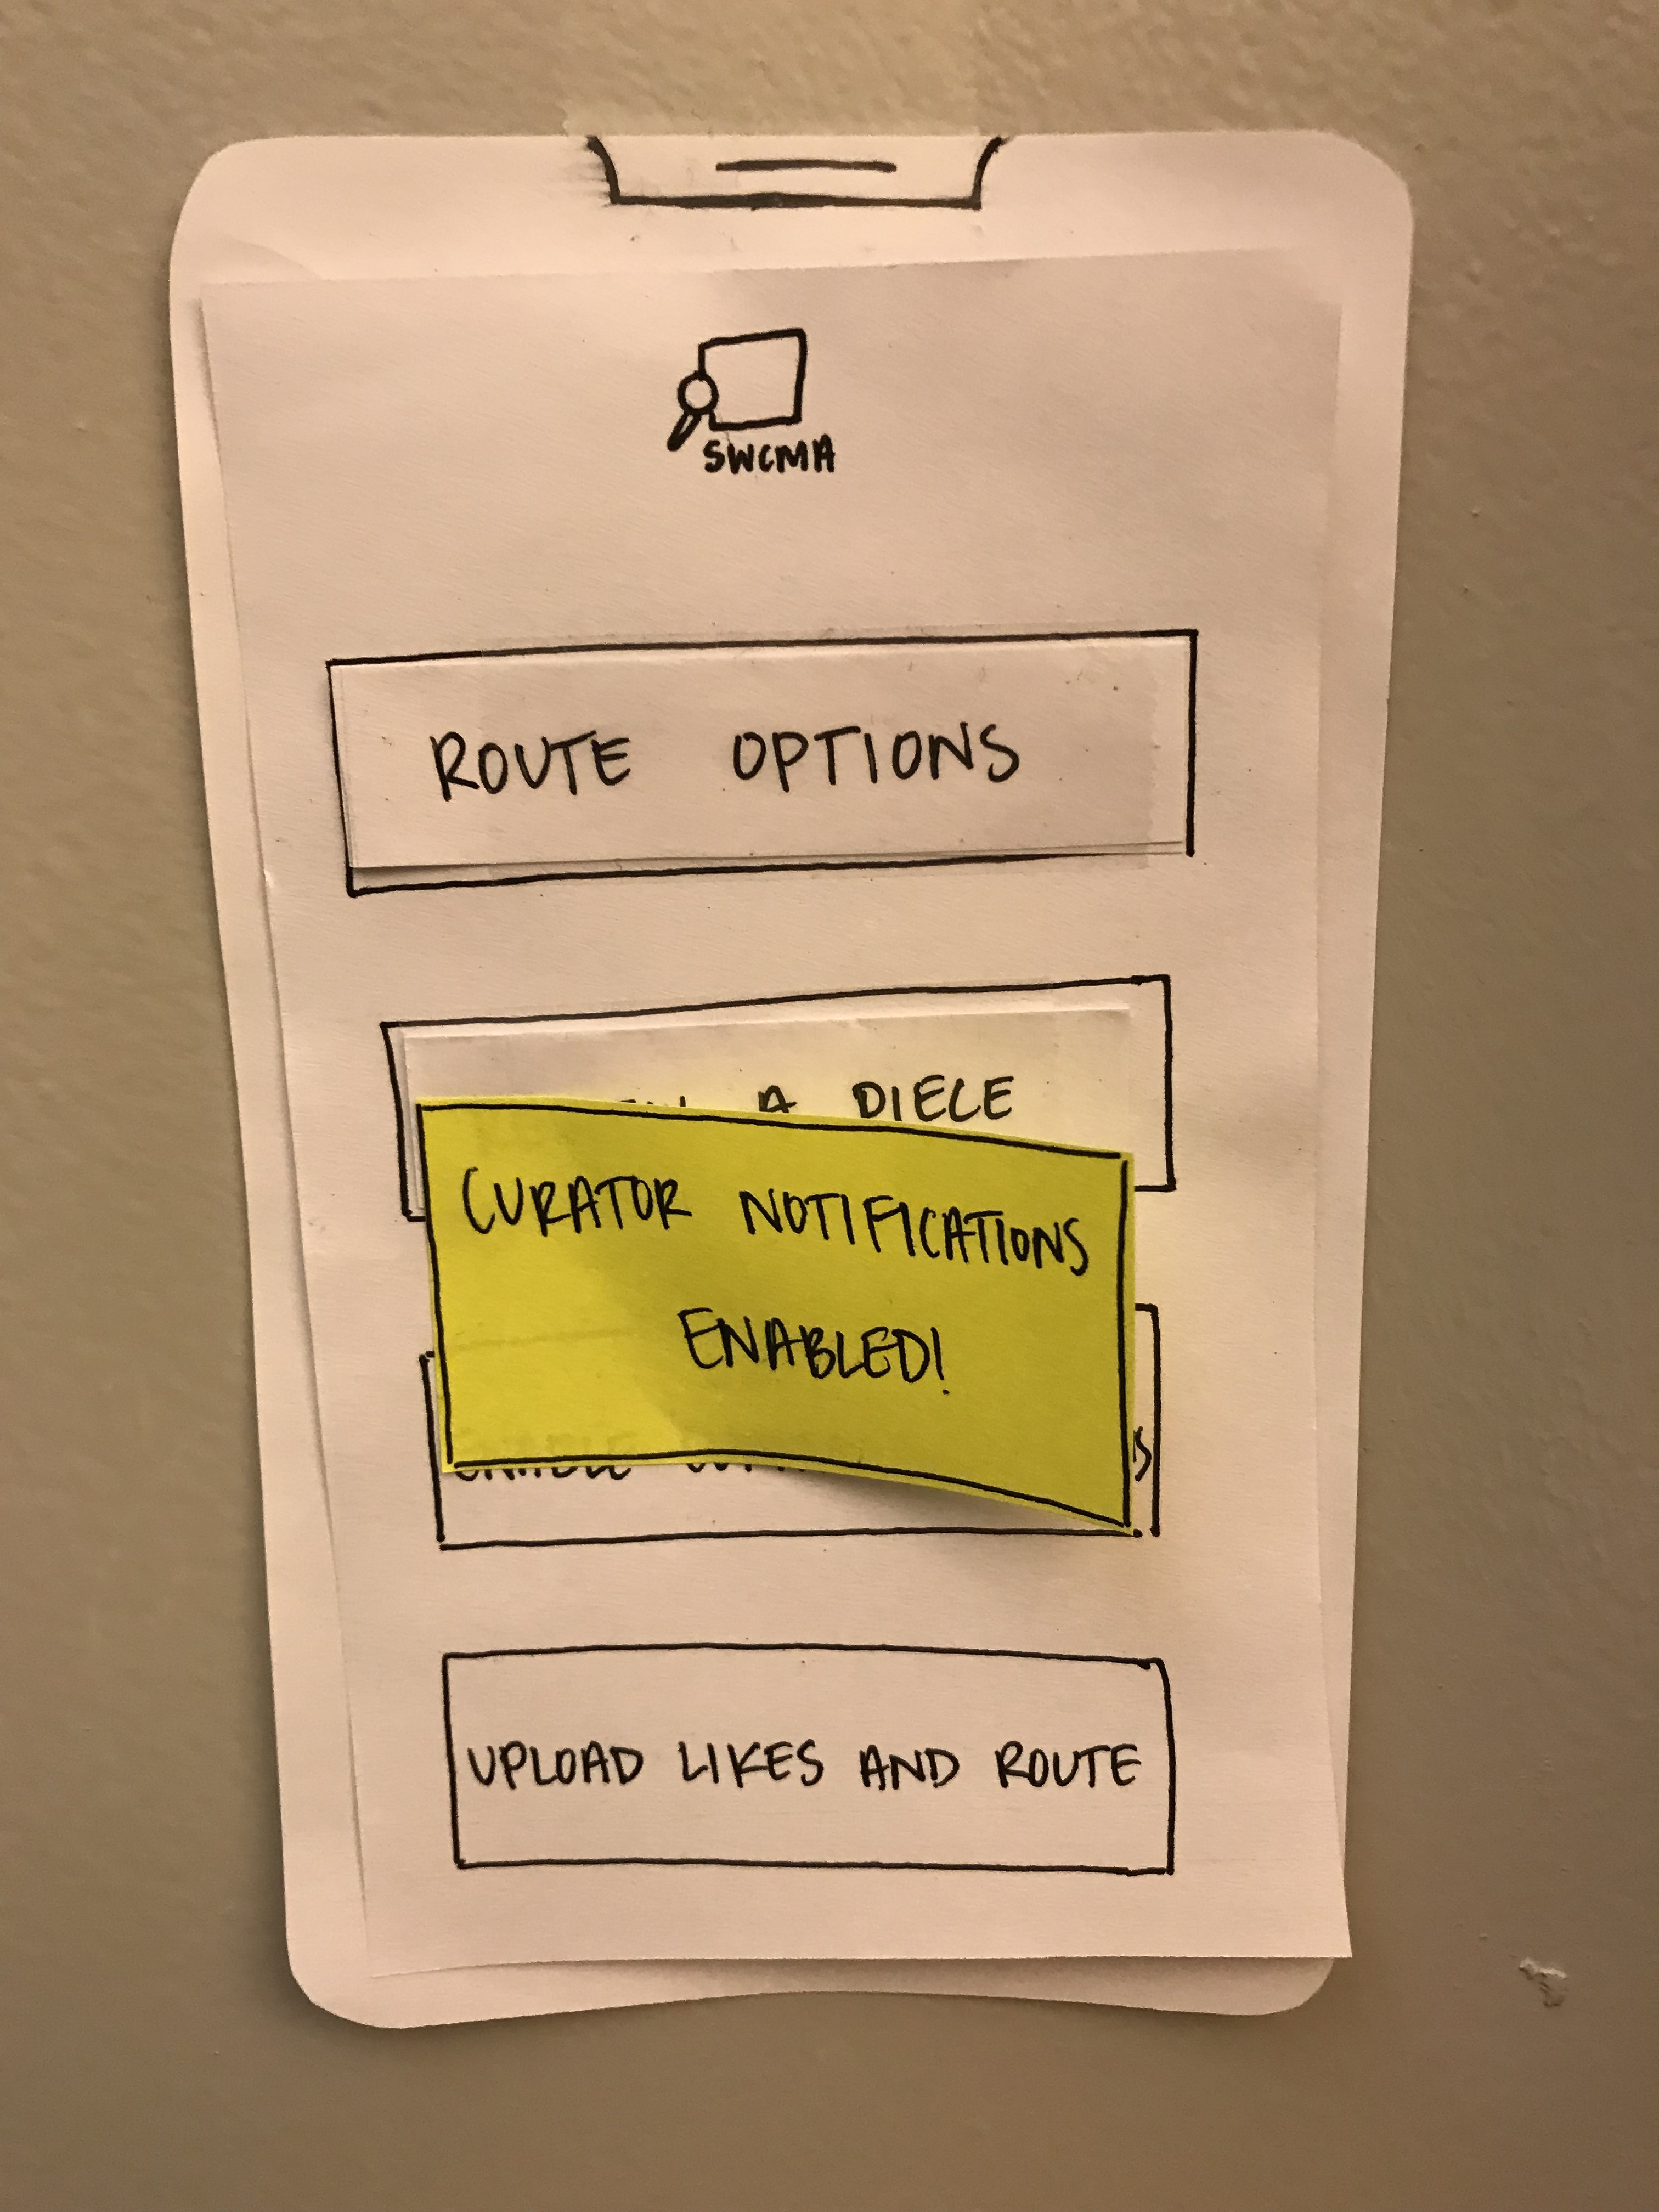 SWCMA
ROUTE OPTIONS
A PIECE
CURATOR NOTIFICATIONS
ENABLED!
ENABLE
UPLOAD LIKES AND ROUTE